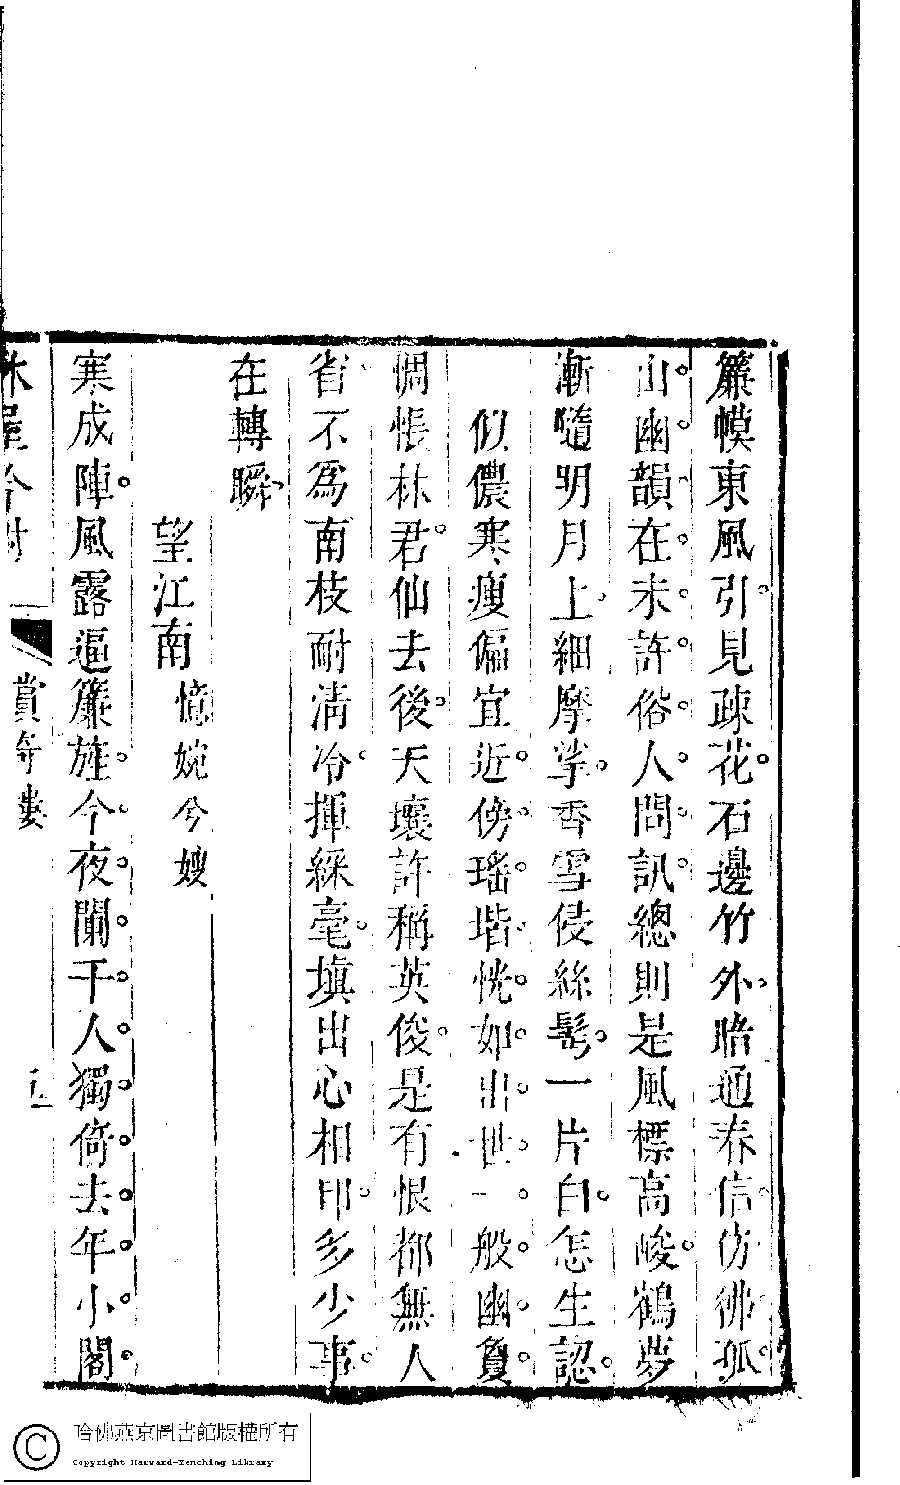 簾幙東風引見疎花石邊竹外暗通春信仿彿孤
山幽韻在未許俗人問訊總則是風標高峻鶴夢
漸隨明月上細摩挲香雪侵絲髩一片白怎生認
似儂寒瘦偏宜近傍瑤堦恍如出世一般幽夐
惆悵林君仙去後天壤許稱英俊是有恨都無人
省不爲南枝耐清冷揮綵毫塡出心相印多少事
在轉瞬
望江南 憶婉兮嫂
寒成陣風露逼簾旌今夜闌干人獨倚去年小閣
賞
哈佛燕京圖書館版權所有
Copyright Harvard-Yenching Library